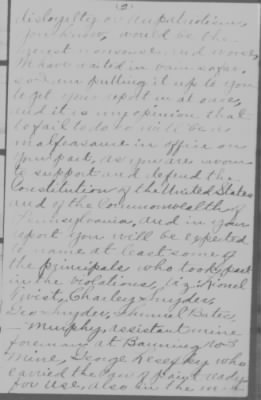 disloyalty or unpatriotism,
you know, would be the
nonsense and worse,
We have waited in vain so far,
so I am putting it up to you
to get your report in at once,
and it is my opinion that
to fail to do so will be a
malfeasance in office on
your part, as you are sworn
to support and defend the
Constitution of the United States
and of the Commonwealth of
Pennsylvania. And in your
report you will be expected
to name at least some of
the principals who took part
in the violations, viz: Lionel
Charley Snyder,
Geo Snyder, Samuel Bates,
— Murphy, assistant mine
foreman at Banning No 3
Mine, George who
carried the can of paint ready
for use, also in the